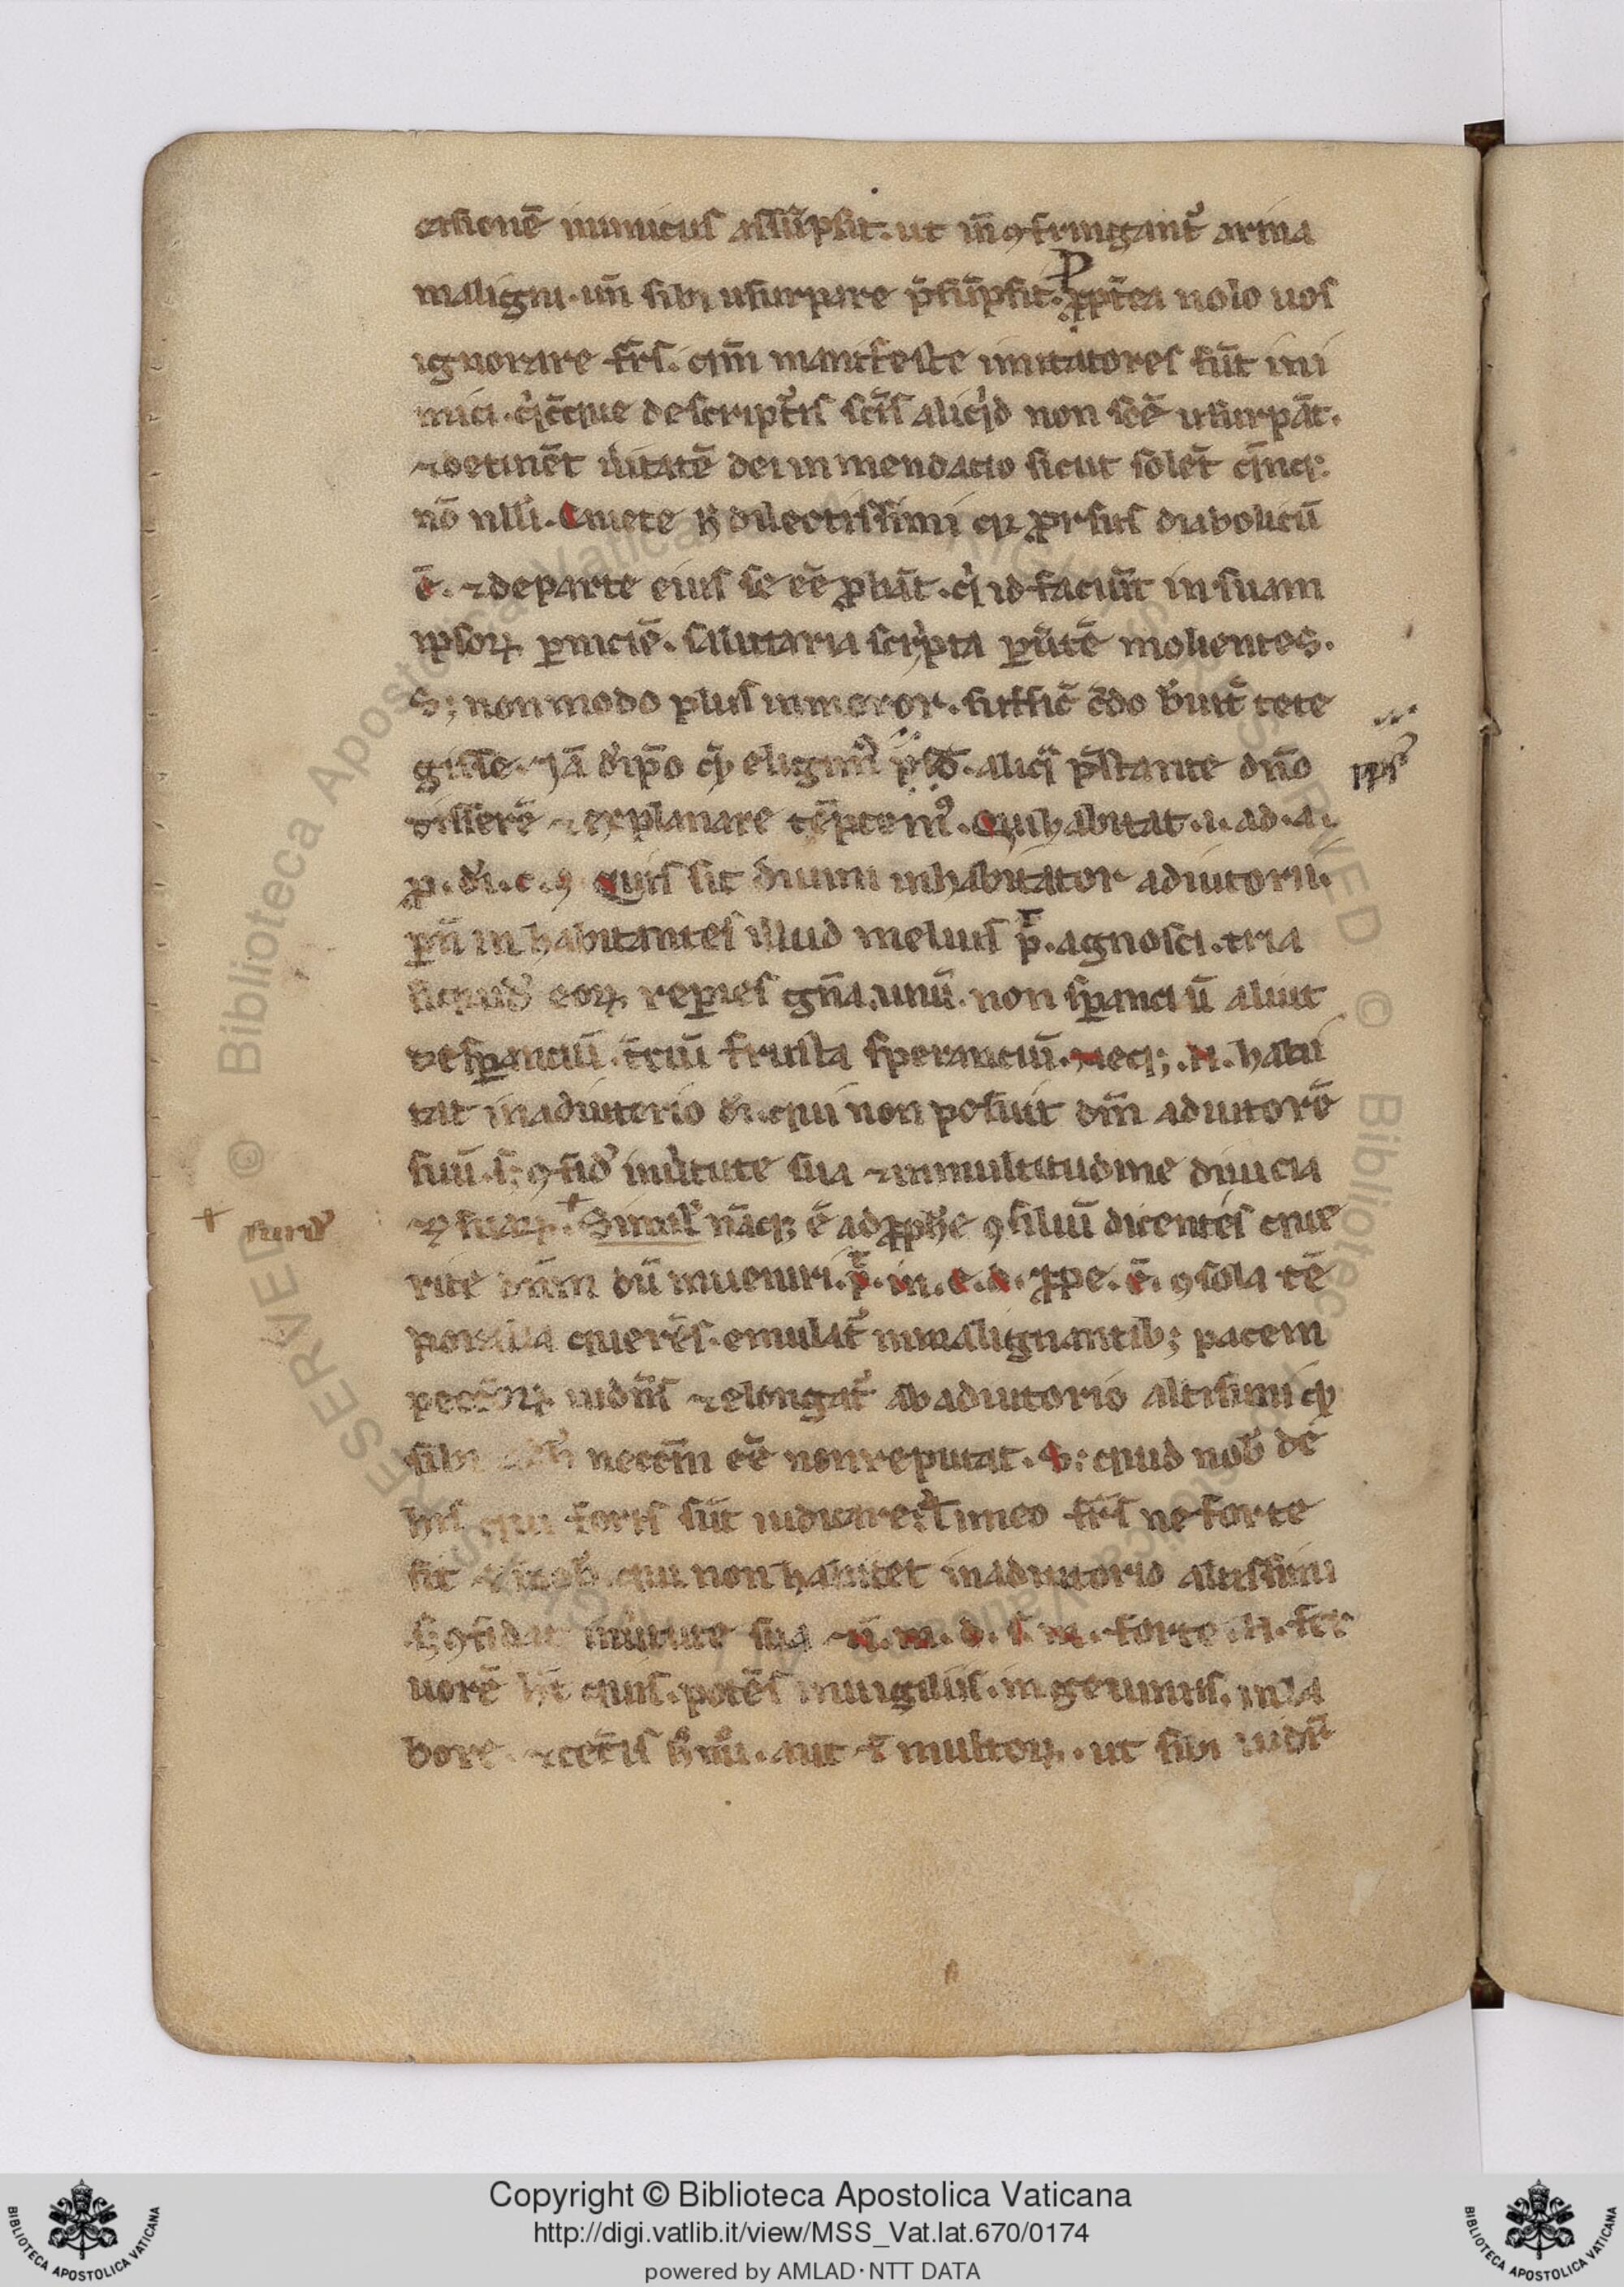 casionē inimicus assūpsit. ut īn ꝯfringant᷑ arma
maligni. un̄ sibi usurpare p̄sūpsit. ꝓpt̄ea nolo uos
ignorare fr̄s. qm̄ manifeste imitatores sūt ini
mici. q̇cq̄ue de scriptur̄is sc̄is aliq̇d non sc̄ē usurpāt.
⁊ detinēt u̇itatē dei in mendacio sicut solēt
nō nlli. Cauete dilectissimi qꝫ ꝓrsus diabolicū
ē. ⁊ de parte eius se eē ꝓbāt. q̇ id faciūt in suam
ipsoꝝ ꝑniciē. salutaria scripta ꝑu̇tē molientes.
Sꝫ non modo plus inmoror. suffic̄ c̄do breuit᷑ tete
gisse. Jā
pps
disser̄e ⁊ explanare tēptem᷒. Qui habitat. i. ad. a.
ꝓ. dī. c. ꝯ Quis sit diuini inhabitator adiutorii.
ꝑ n̄ inhabitantes illud melius p̄t. agnosci. tria
siquid᷒ eoꝝ reperies gn̄a. unū. non sꝑanciū aliut
desꝑanciū. t̄ciū frusta sperancium. Neqꝫ. n. habi
tat in adiutorio dī. qui non posuit dm̄ adiutorē
suū. sꝫ ꝯfid᷒ in u̇tute sua ⁊ in multitudine diuicia
ꝝ suaꝝ. + Simil᷒ nāqꝫ ē ad ꝓph̄e ꝯsiliū dicentes que
+ surd᷒
rite dn̄m dū inueniri. p̄t. in. c. d. ꝓpe. ē. ꝯ sola tē
poralia querēs. emulat᷑ in malignantibꝫ pacem
pecc̄oꝝ uidēs ⁊ elongat᷑ ab adiutorio altissimi qꝫ
sibi nec̄cm eē non reputat. Sꝫ quid nob̄ de
his qui foris sūt iudicare. Timeo fr̄s ne forte
sit nob̄. qui non habitet in adiutorio altissimi
sꝫ ꝯfidat in u̇tute sua ⁊ i. m. d. s. n. forte. n. fer
uorē h̄t quis. potēs in uigiliis. in geiuniis. in la
bore. ⁊ cet̄is aut ⁊ multoꝝ. ut sibi
Copyright © Biblioteca Apostolica Vaticana
http://digi.vatlib.it/view/MSS_Vat.lat.670/0174
powered by AMLAD·NTT DATA
BIBLIOTECA APOSTOLICA VATICANA
BIBLIOTECA APOSTOLICA VATICANA